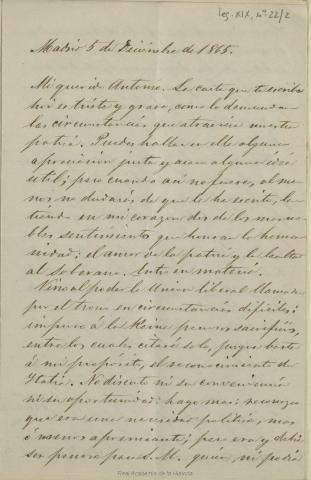 leg. XIX, nº 22/2
Madrid 5 de Diciembre de 1865.
Mi querido Antonio. La carta que te escribo
hoi es triste y grave, como lo demandan
las circunstancias que atraviesa nuestra
patria. Puedes hallar en ella alguna
apreciacion justa y acaso alguna idea
util; pero cuando asi no fuere, al me-
nos no dudarás de que la he escrito, la-
tiendo en mi corazon dos de los mas no-
bles sentimientos que honran la huma-
nidad: el amor de la patria y la lealtad
al Soberano. Entro en materia.
Vino al poder la Union liberal llamada
por el trono en circunstancias dificiles:
impuso á la Reina penosos sacrificios,
entre los cuales citaré solo, porque basta
á mi propósito, el reconocimiento de
Italia. No discuto ni su conveniencia
ni su oportunidad: hago mas: reconozco
que era una necesidad politica, mas
ó menos apremiante; pero era y debia
ser penoso para S. M. quien, ni podia
Real Academia de la Historia